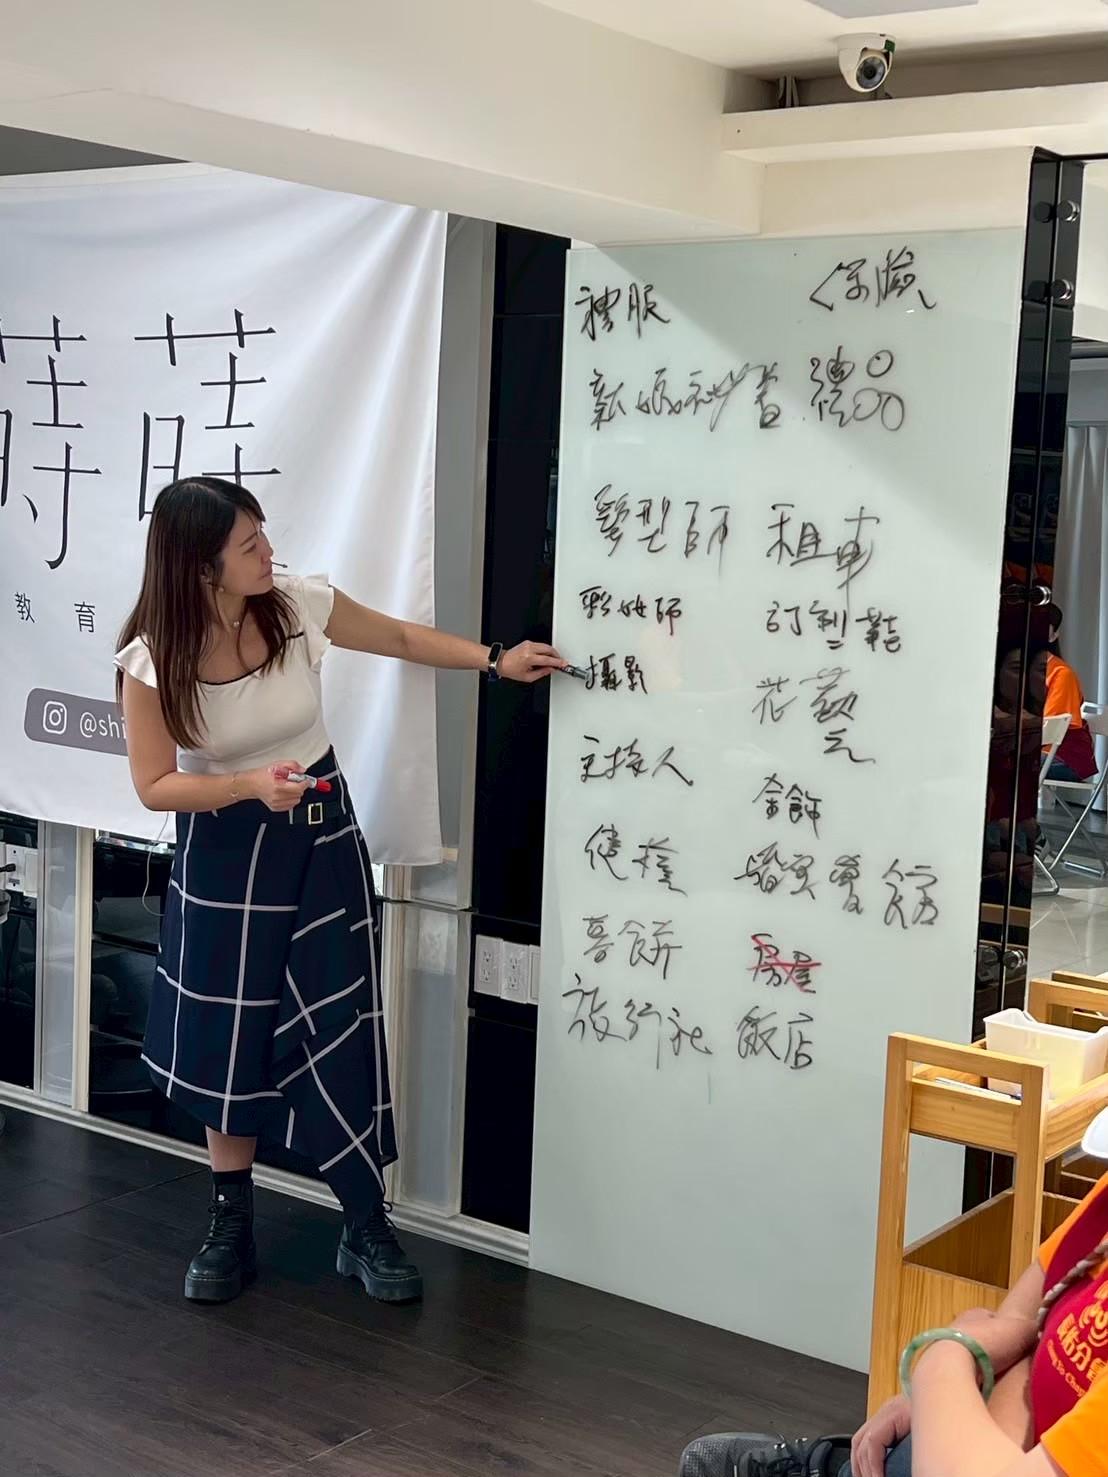 蒔蒔
教育
@shi
禮服
新娘秘書
髮型師
彩妝師
攝影
主持人
婚禮
喜餅
旅行社
保險
禮品
租車
訂製鞋
花藝
金飾
婚宴會館
房屋
飯店